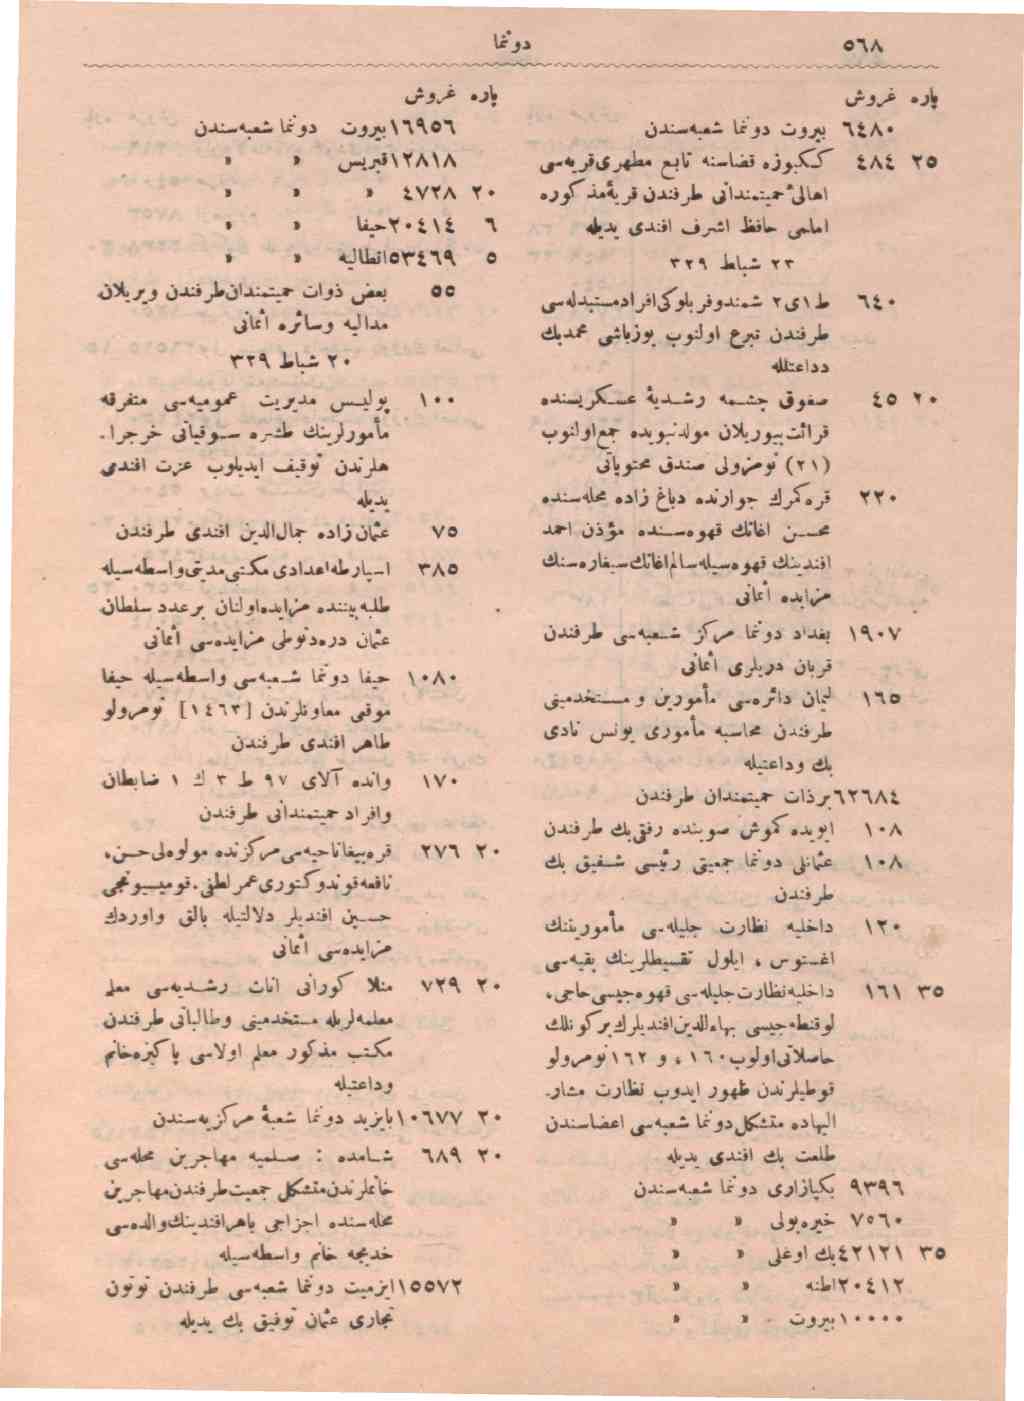 ٥٦٨
دوننما
پاره غروش
٦٤٨٠ بیروت دوننما شعبه‌سندن
٢٥ ٤٨٤ ككبوزه قضاسنه تابع مطهری قریه‌سی
اهالیٔ حمیتمندانی طرفندن قریهٔ مذكوره
امامی حافظ اشرف افندی یدیله
٢٣ شباط ٣٢٩
٦٤٠ ط ١ ی ٢ شمندوفر بلوكی افراد مستبدله‌سی
طرفندن تبرع اولنوب یوزباشی محمد بك
دداعتله
٢٠ ٤٥ صغوق چشمه رشدیهٔ عسكریسنده
قرائت بیوریلان مولد نبویده جمع اولنوب
(٢١) نومرولی صندق محتویاتی
٢٢٠ قره‌كمرك جوارنده دباغ زاده محله‌سنده
محسن اغانك قهوه‌سنده مؤذن احمد
افندینك قهوه‌سیله سالم اغانك سیغاره‌سنك
مزایده اثمانی
١٩٠٧ بغداد دوننما مركز شعبه‌سی طرفندن
قربان دریلری اثمانی
١٦٥ لیمان دائره‌سی مأمورین و مستخدمینی
طرفندن محاسبه مأموری یونس نادی
بك وداعتیله
٦٢٦٨٤ برذات حمیتمندان طرفندن
١٠٨ ایوبده كموش صوینده رفقی بك طرفندن
١٠٨ عثمانلی دوننما جمعیتی رئیسی شفیق بك
طرفندن
١٢٠ داخلیه نظارت جلیله‌سی مأموریننك
اغستوس ، ایلول تقسیطلرینك بقیه‌سی
٣٥ ١٦١ داخلیه نظارت جلیله‌سی قهوه‌جیسی حاجی ،
لوقنطه‌جیسی بهاءالدین افندیلرك بر كونلك
حاصلاتی اولوب ١٦٠ ، و ١٦٢ نومرولو
قوطیلرندن ظهور ایدوب نظارت مشار
الیهاده متشكل دوننما شعبه‌سی اعضاسندن
طلعت بك افندی یدیله
٩٣٩٦ بكپازاری دوننما شعبه‌سندن
٧٥٦٠ خیره‌بولی » »
٣٥ ٤٢١٢١ بك اوغلی » »
٢٠٤١٢ اطنه » »
١٠٠٠٠ بیروت » »
پاره غروش
١٦٩٥٦ بیروت دوننما شعبه‌سندن
١٢٨١٨ قبریس » »
٢٠ ٤٧٢٨ » » »
٦ ٢٠٤١٤ حیفا » »
٥ ٥٣٤٦٩ انطالیه » »
٥٥ بعض ذوات حمیتمندان طرفندن ویریلان
مدالیه وسائره اثمانی
٢٠ شباط ٣٢٩
١٠٠ پولیس مدیریت عمومیه‌سی متفرقه
مأمورلرینك طشره سوقیاتی خرجرا-
هلرندن توقیف ایدیلوب عزت افندی
یدیله
٧٥ عثمان زاده جمال‌الدین افندی طرفندن
٣٨٥ اسپارطه اعدادی مكتبی مدیتی واسطه‌سیله
طلبه بیننده مزایده اولنان بر عدد سلطان
عثمان دره‌دنوطی مزایده‌سی اثمانی
١٠٨٠ حیفا دوننما شعبه‌سی واسطه‌سیله حیفا
موقی معاونلرندن [١٤٦٣] نومرولو
طاهر افندی طرفندن
١٧٠ وانده آلای ٩٧ ط ٣ ك ١ ضابطان
وافراد حمیتمندانی طرفندن
٢٠ ٢٧٦ قره‌بیغا ناحیه‌سی مركزنده مولوه‌لی حسن ،
نافعه قوندوكتوری عمر لطفی . قومیسیونجی
حسین افندیلر دلالتیله بالق واوردك
مزایده‌سی اثمانی
٢٠ ٧٢٩ منلا كورانی اناث رشدیه‌سی معلم
معلمه‌لریله مستخدمینی وطالباتی طرفندن
مكتب مذكور معلم اولاسی پاكیزه خانم
وداعتیله
٢٠ ١٠٦٧٧ بایزید دوننما شعبهٔ مركزیه‌سندن
٢٠ ٦٨٩ شامده : صلمیه مهاجرین محله‌سی
خانملرندن متشكل جمعیت طرفندن مهاجرین
محله‌سنده اجزاجی باهر افندینك والده‌سی
خدیجه خانم واسطه‌سیله
١٥٥٧٢ ازمیت دوننما شعبه‌سی طرفندن توتون
تجاری عثمان توفیق بك یدیله